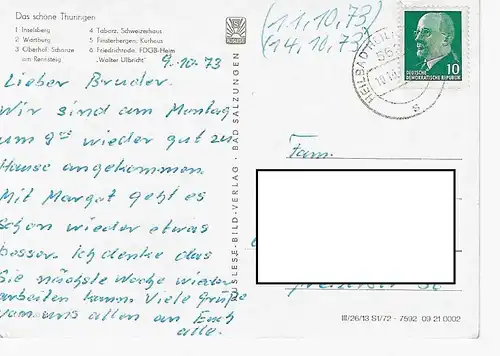 Das schöne Thüringen
1 Inselsberg
2 Wartburg
3 Oberhof: Schanze
am Rennsteig
4 Tabarz, Schweizerhaus
5 Finsterbergen: Kurhaus
6 Friedrichroda, FDGB-Heim
„Walter Ulbricht"
9.10.73
Lieber Bruder.
Wir sind am Montag
um 8 wieder gut zu
Hause angekommen.
Mit Margot geht es
schon wieder etwas
besser. Ich denke das
Sie nächste Woche wieder
arbeiten kann. Viele Grüße
vom uns allen an Euch
alle.
AUSLESE-BILD-VERLAG · BAD SALZUNGEN
(11,10,73)
(14,10,73)
HEILBAD HEIL
DEUTSCHE
DEMOKRATISCHE REPUBLIK
10
Fam.
III/26/13 S1/72 - 7592 09 21 0002